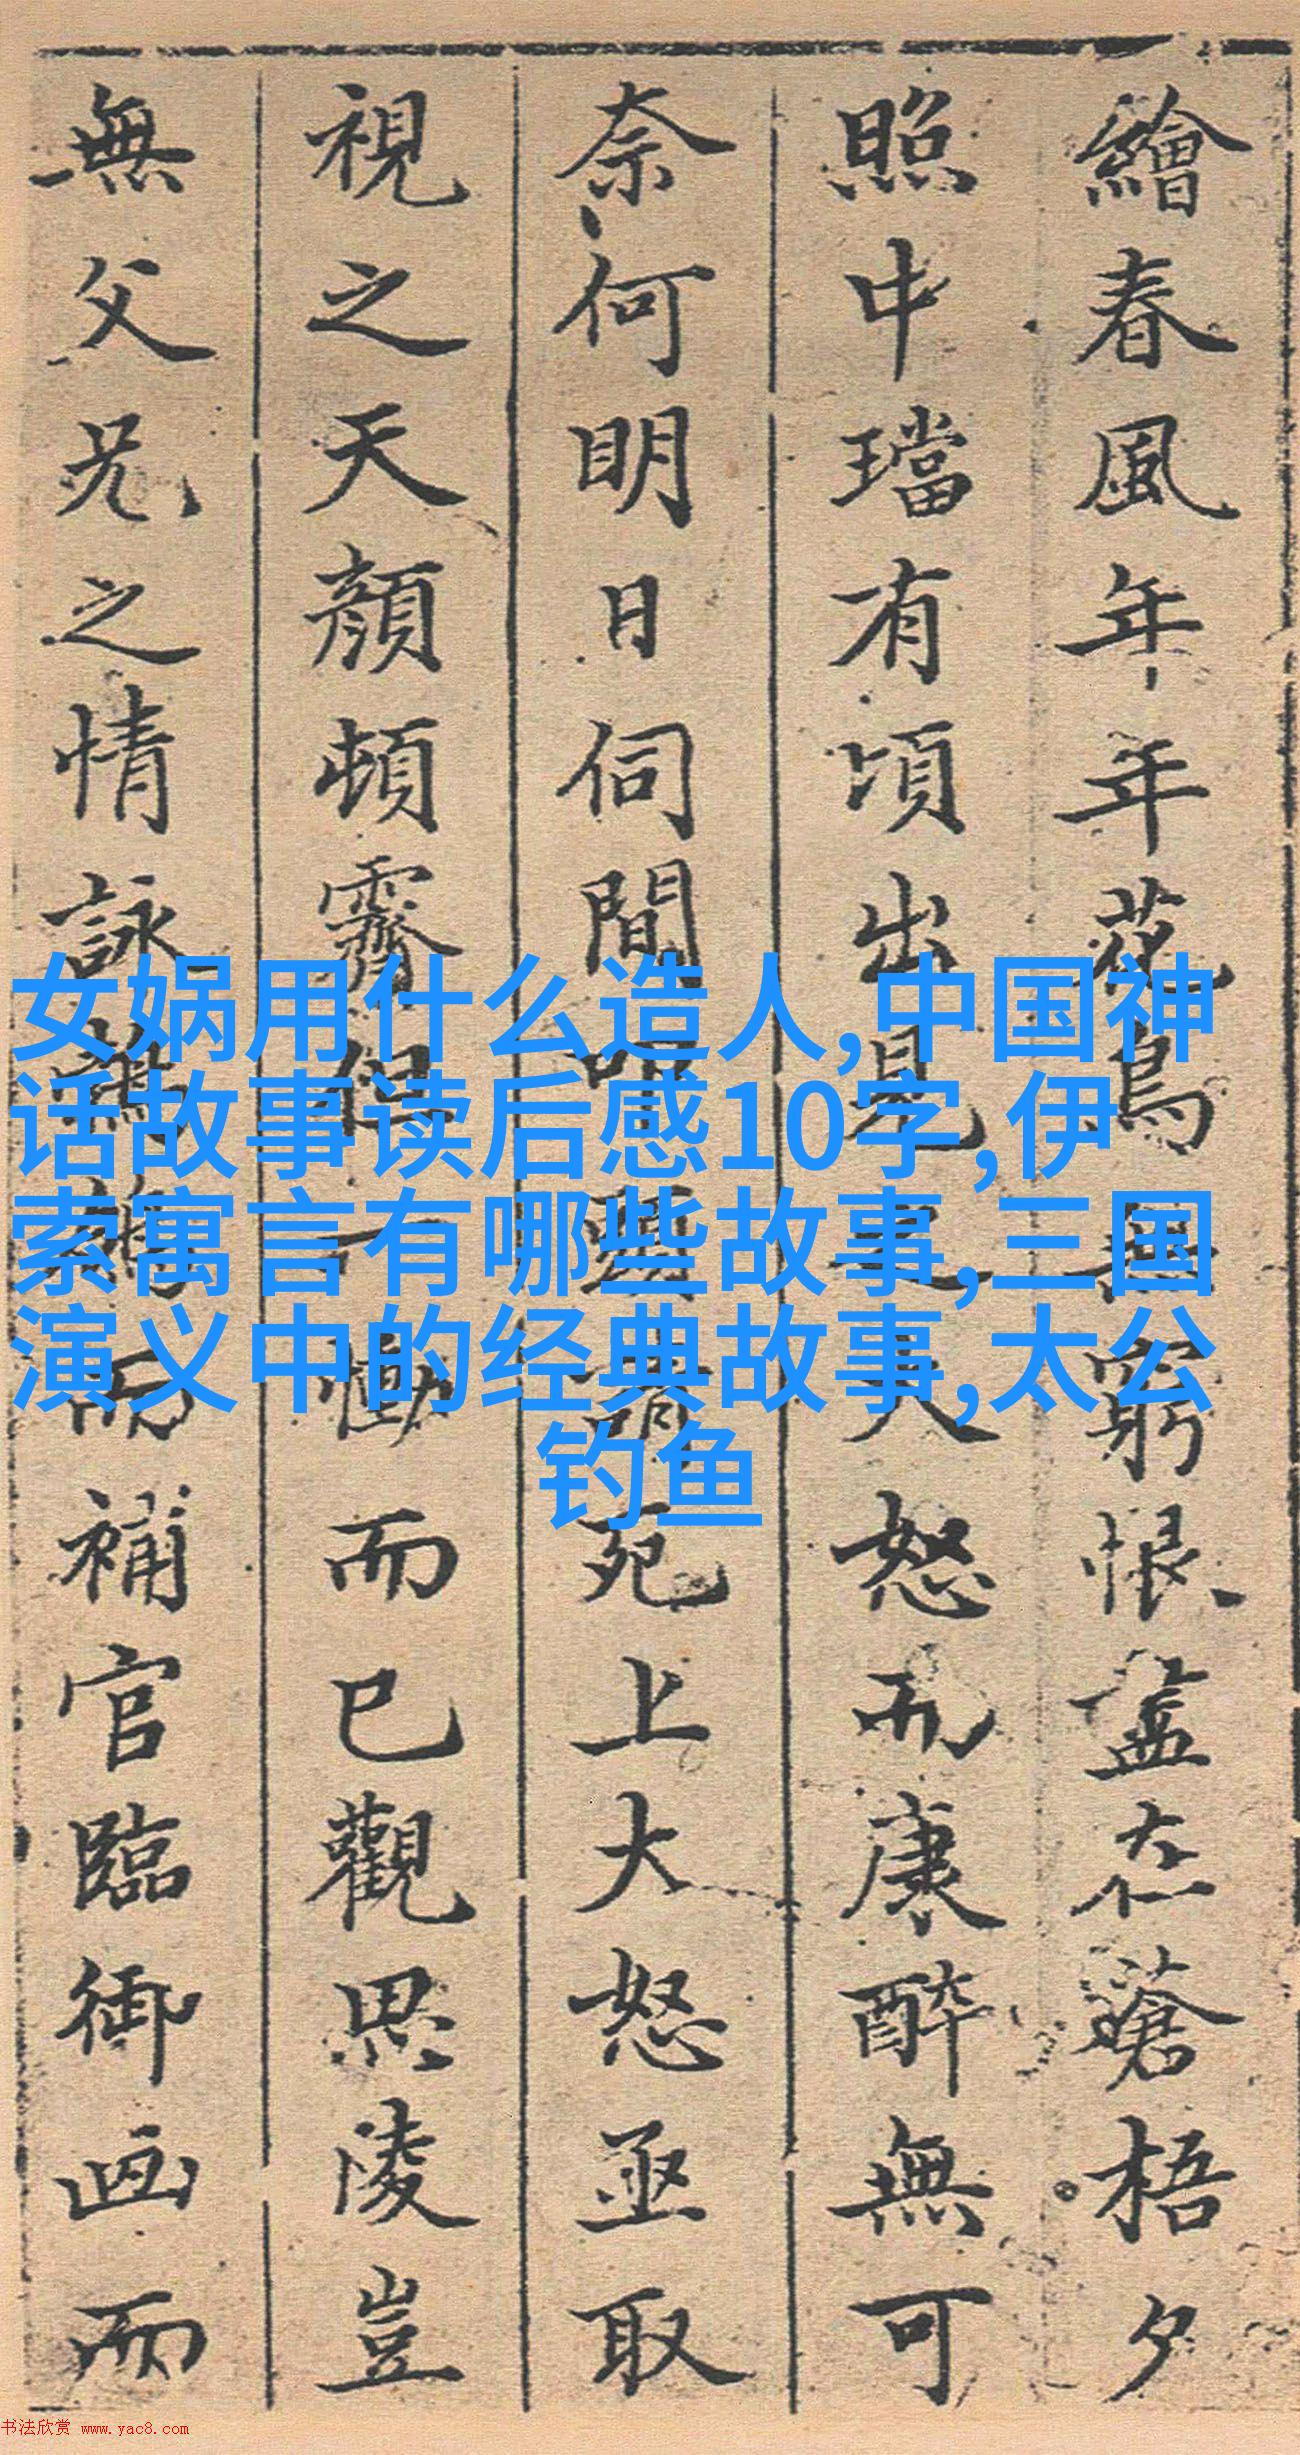 繪春風年年花鳥無窮恨盡在蒼梧夕
照中璫有頃出見之大怒而康醉無可
奈何明日伺間叩頭請死上大怒亟取
視之天顔頓霽但一慟而已觀思陵豈
無父兄之情詠鶺鴒而補官臨御画而
女娲用什么造人,中国神
话故事读后感10字,伊
索寓言有哪些故事,三国
演义中的经典故事,太公
钓鱼
书法欣赏 www.yac8.com